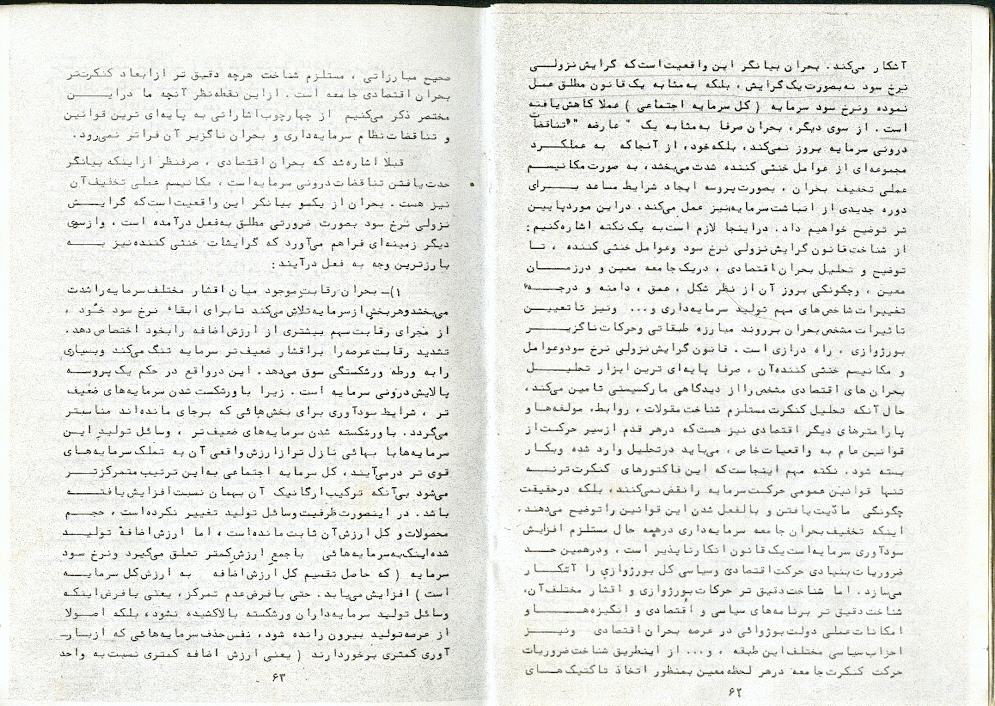 آشکار میکند. بحران بیانگر این واقعیت است که گرایش نزولی
نرخ سود نه بصورت یک گرایش، بلکه به مثابه یک قانون مطلق عمل
نموده و نرخ سود سرمایه (کل سرمایه اجتماعی) عملا کاهش یافته
است. از سوی دیگر، بحران صرفا به مثابه یک "عارضه" تناقضات
درونی سرمایه بروز نمیکند، بلکه خود، از آنجا که به عملکرد
مجموعه ای از عوامل خنثی کننده شدت می‌بخشد، به صورت مکانیسم
عملی تخفیف بحران، بصورت پروسه ایجاد شرایط مساعد برای
دوره جدیدی از انباشت سرمایه نیز عمل میکند. در این مورد پایین
تر توضیح خواهیم داد. در اینجا لازم است به یک نکته اشاره کنیم:
از شناخت قانون گرایش نزولی نرخ سود و عوامل خنثی کننده، تا
توضیح و تحلیل بحران اقتصادی، در یک جامعه معین و در زمان
معین، و چگونگی بروز آن از نظر شکل، عمق، دامنه و درجه
تغییرات شاخص های مهم تولید سرمایه داری و... ونیز تا تعیین
تاثیرات مشخص بحران بر روند مبارزه طبقاتی و حرکات ناگزیر
بورژوازی، راه درازی است. قانون گرایش نزولی نرخ سود و عوامل
و مکانیسم خنثی کننده آن، صرفا پایه ای ترین ابزار تحلیل
بحران های اقتصادی مشخص را از دیدگاهی مارکسیستی تامین میکند،
حال آنکه تحلیل کنکرت مستلزم شناخت مقولات، روابط، مولفه ها و
پارامترهای دیگر اقتصادی نیز هست که در هر قدم از سیر حرکت از
قوانین عام به واقعیات خاص، می‌باید در تحلیل وارد شده و بکار
بسته شود. نکته مهم اینجاست که این فاکتورهای کنکرت تر نه
تنها قوانین عمومی حرکت سرمایه را نقض نمی‌کنند، بلکه در حقیقت
چگونگی مادّیت یافتن و بالفعل شدن این قوانین را توضیح می‌دهند.
اینکه تخفیف بحران جامعه سرمایه داری در همه حال مستلزم افزایش
سودآوری سرمایه است یک قانون انکارناپذیر است، و در همین حد
ضروریات بنیادی حرکت اقتصادی و سیاسی کل بورژوازی را آشکار
می‌سازد. اما شناخت دقیق تر حرکات بورژوازی و اقشار مختلف آن،
شناخت دقیق تر برنامه های سیاسی و اقتصادی و انگیزه ها و
امکانات عملی دولت بوژوائی در عرصه بحران اقتصادی ونیز
احزاب سیاسی مختلف این طبقه، و... از اینطریق شناخت ضروریات
حرکت کنکرت جامعه در هر لحظه معین بمنظور اتخاذ تاکتیک های
۶۲
صحیح مبارزاتی، مستلزم شناخت هرچه دقیق تر از ابعاد کنکرت‌تر
بحران اقتصادی جامعه است. از این نقطه نظر آنچه ما در این
مختصر ذکر میکنیم از چهارچوب اشاراتی به پایه ای ترین قوانین
و تناقضات نظام سرمایه داری و بحران ناگزیر آن فراتر نمی‌رود.
قبلا اشاره شد که بحران اقتصادی، صرفنظر از اینکه بیانگر
حدت یافتن تناقضات درونی سرمایه است، مکانیسم عملی تخفیف آن
نیز هست. بحران از یکسو بیانگر این واقعیت است که گرایش
نزولی نرخ سود بصورت ضرورتی مطلق به فعل درآمده است، و از سوی
دیگر زمینه ای فراهم می‌آورد که گرایشات خنثی کننده نیز به
بارزترین وجه به فعل درآیند:
۱)- بحران رقابت موجود میان اقشار مختلف سرمایه را شدت
می‌بخشد و هر بخش از سرمایه تلاش می‌کند تا برای ابقاء نرخ سود خود،
از مجرای رقابت سهم بیشتری از ارزش اضافه را بخود اختصاص دهد.
تشدید رقابت عرصه را بر اقشار ضعیف تر سرمایه تنگ می‌کند و بسیاری
را به ورطه ورشکستگی سوق می‌دهد. این در واقع در حکم یک پروسه
پالایش درونی سرمایه است. زیرا با ورشکست شدن سرمایه های ضعیف
تر، شرایط سودآوری برای بخش هائی که برجای مانده اند مناسبتر
می‌گردد. با ورشکسته شدن سرمایه های ضعیف تر، وسائل تولید این
سرمایه ها با بهائی نازل تر از ارزش واقعی آن به تملک سرمایه های
قوی تر درمی‌آیند، کل سرمایه اجتماعی به این ترتیب متمرکزتر
می‌شود بی‌آنکه ترکیب ارگانیک آن بهمان نسبت افزایش یافته
باشد. در اینصورت ظرفیت وسائل تولید تغییر نکرده است، حجم
محصولات و کل ارزش آن ثابت مانده است، اما ارزش اضافهٔ تولید
شده اینک به سرمایه هائی با جمع ارزش کمتر تعلق می‌گیرد و نرخ سود
سرمایه (که حاصل تقسیم کل ارزش اضافه به ارزش کل سرمایه
است) افزایش می‌یابد. حتی با فرض عدم تمرکز، یعنی با فرض اینکه
وسائل تولید سرمایه داران ورشکسته بالا کشیده نشود، بلکه اصولا
از عرصه تولید بیرون رانده شود، نفس حذف سرمایه هائی که از بار-
آوری کمتری برخوردارند (یعنی ارزش اضافه کمتری نسبت به واحد
۶۳